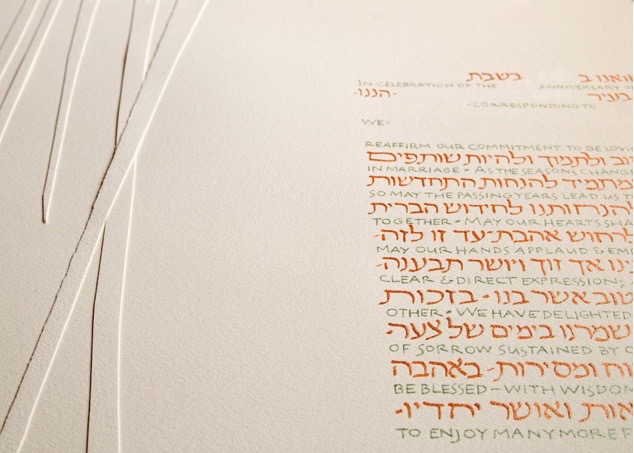 ואנו ב בשבת
IN CELEBRATION OF THE ANNIVERSARY OF
·הננו· בעיר
-CORRESPONDING TO
WE-
REAFFIRM OUR COMMITMENT TO BE LOVIN
וב ולתמוך ולהיות שותפים
IN MARRIAGE · AS THE SEASONS CHANGE
מתמיד להנחות התחדשות
SO MAY THE PASSING YEARS LEAD US T
לחידוש הברית
TOGETHER · MAY OUR HEARTS SHA
לרחוש אהבת-עד זו לזה·
MAY OUR HANDS APPLAUD & EM
ינו אך זוך ויושר תבענה·
CLEAR & DIRECT EXPRESSION;
טוב אשר בנו · בזכות
OTHER · WE HAVE DELIGHTED
שמרנו בימים של צער·
OF SORROW SUSTAINED BY
וח ומסירות· באהבה
BE BLESSED – WITH WISDOM
אות ואושר יחדיו·
TO ENJOY MANY MORE